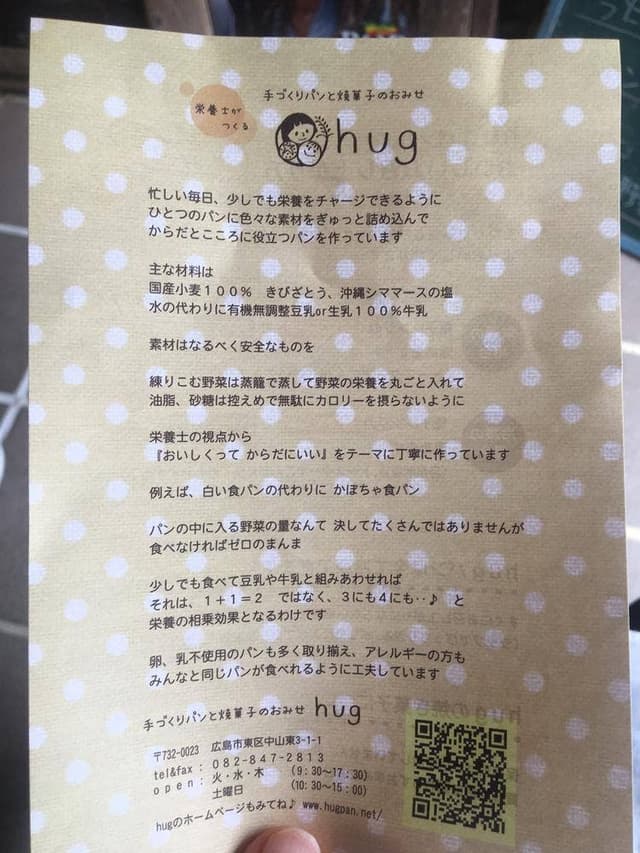 手づくりパンと焼菓子のおみせ
栄養士が
つくる
hug
忙しい毎日、少しでも栄養をチャージできるように
ひとつのパンに色々な素材をぎゅっと詰め込んで
からだとこころに役立つパンを作っています
主な材料は
国産小麦１００％　きびざとう、沖縄シママースの塩
水の代わりに有機無調整豆乳or生乳１００％牛乳
素材はなるべく安全なものを
練りこむ野菜は蒸籠で蒸して野菜の栄養を丸ごと入れて
油脂、砂糖は控えめで無駄にカロリーを摂らないように
栄養士の視点から
『おいしくって からだにいい』をテーマに丁寧に作っています
例えば、白い食パンの代わりに かぼちゃ食パン
パンの中に入る野菜の量なんて 決してたくさんではありませんが
食べなければゼロのまんま
少しでも食べて豆乳や牛乳と組みあわせれば
それは、１＋１＝２　ではなく、３にも４にも‥♪　と
栄養の相乗効果となるわけです
卵、乳不使用のパンも多く取り揃え、アレルギーの方も
みんなと同じパンが食べれるように工夫しています
手づくりパンと焼菓子のおみせ hug
〒732-0023　広島市東区中山東3-1-1
tel&fax : 082-847-2813
open : 火・水・木　（9:30〜17:30）
土曜日　（10:30〜15:00）
hugのホームページもみてね♪ www.hugpan.net/